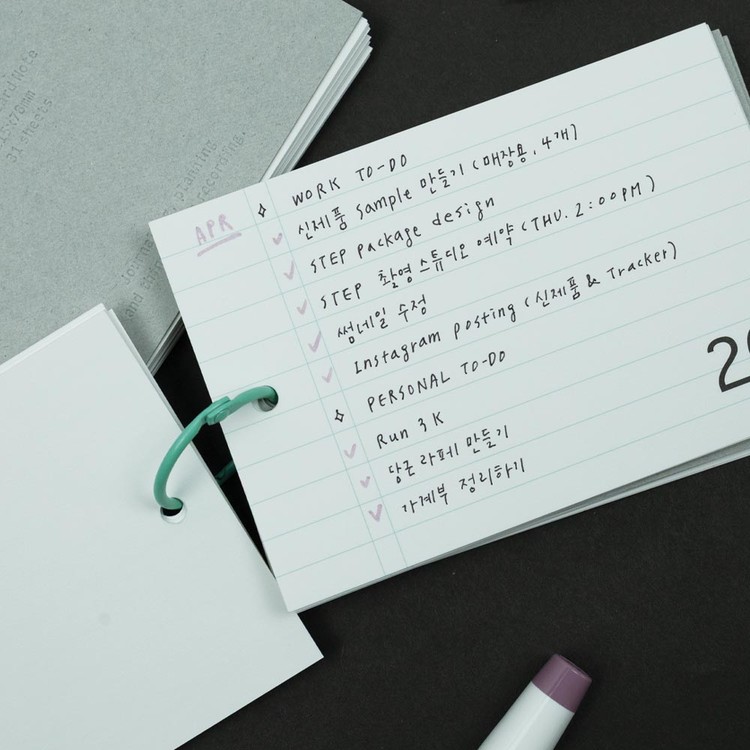 ard Note
15x70mm
31 sheets
planning
recording.
APR
WORK TO-DO
신제품 sample 만들기 (매장용, 4개)
STEP package design
STEP 촬영 스튜디오 예약 (THU. 2:00PM)
썸네일 수정
Instagram posting (신제품 & Tracker)
PERSONAL TO-DO
Run 3K
당근라페 만들기
가계부 정리하기